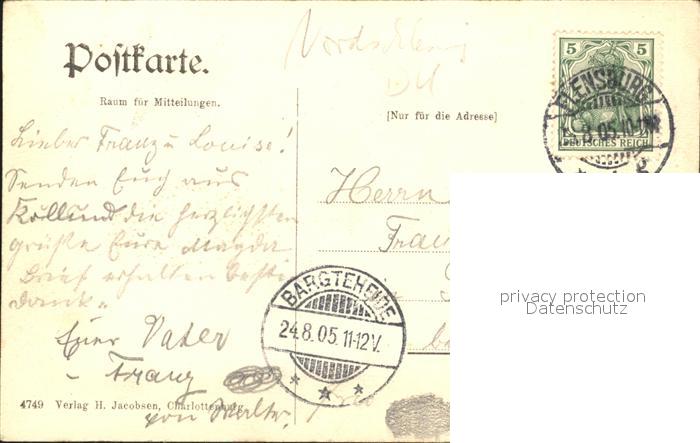 Postkarte.
Nordschleswig
5 5
FLENSBURG
8.05.10-11N
DEUTSCHES REICH
Raum für Mitteilungen.
[Nur für die Adresse]
Lieber Franz u Louise!
Senden Euch aus
Kollund die herzlichsten
grüße Eure Magda
Brief erhalten besten
dank.
Euer Vater
– Franz
von Walter.
Herrn
Franz
BARGTEHEIDE
24.8.05.11-12V.
privacy protection
Datenschutz
4749 Verlag H. Jacobsen, Charlottenburg.